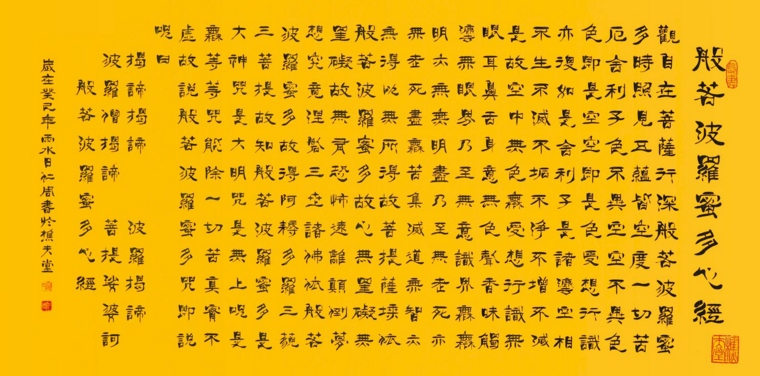 般若波羅蜜多心經
觀自在菩薩行深般若波羅蜜
多時照見五蘊皆空度一切苦
厄舍利子色不異空空不異色
色即是空空即是色受想行識
亦復如是舍利子是諸灋空相
不生不滅不垢不淨不增不減
是故空中無色無受想行識無
眼耳鼻舌身意無色聲香味觸
灋無眼界乃至無意識界無無
明亦無無明盡乃至無老死亦
無老死盡無苦集滅道無智亦
無得以無所得故菩提薩埵依
般若波羅蜜多故心無罣礙無
罣礙故無有恐怖遠離顛倒夢
想究竟涅槃三世諸佛依般若
波羅蜜多故得阿耨多羅三藐
三菩提故知般若波羅蜜多是
大神咒是大明咒是無上呪是
無等等咒能除一切苦真實不
虛故說般若波羅蜜多咒即說
呪曰
揭諦揭諦　波羅揭諦
波羅僧揭諦　菩提娑婆訶
般若波羅蜜多心經
歲在癸巳年雨水日周書於樵夫堂